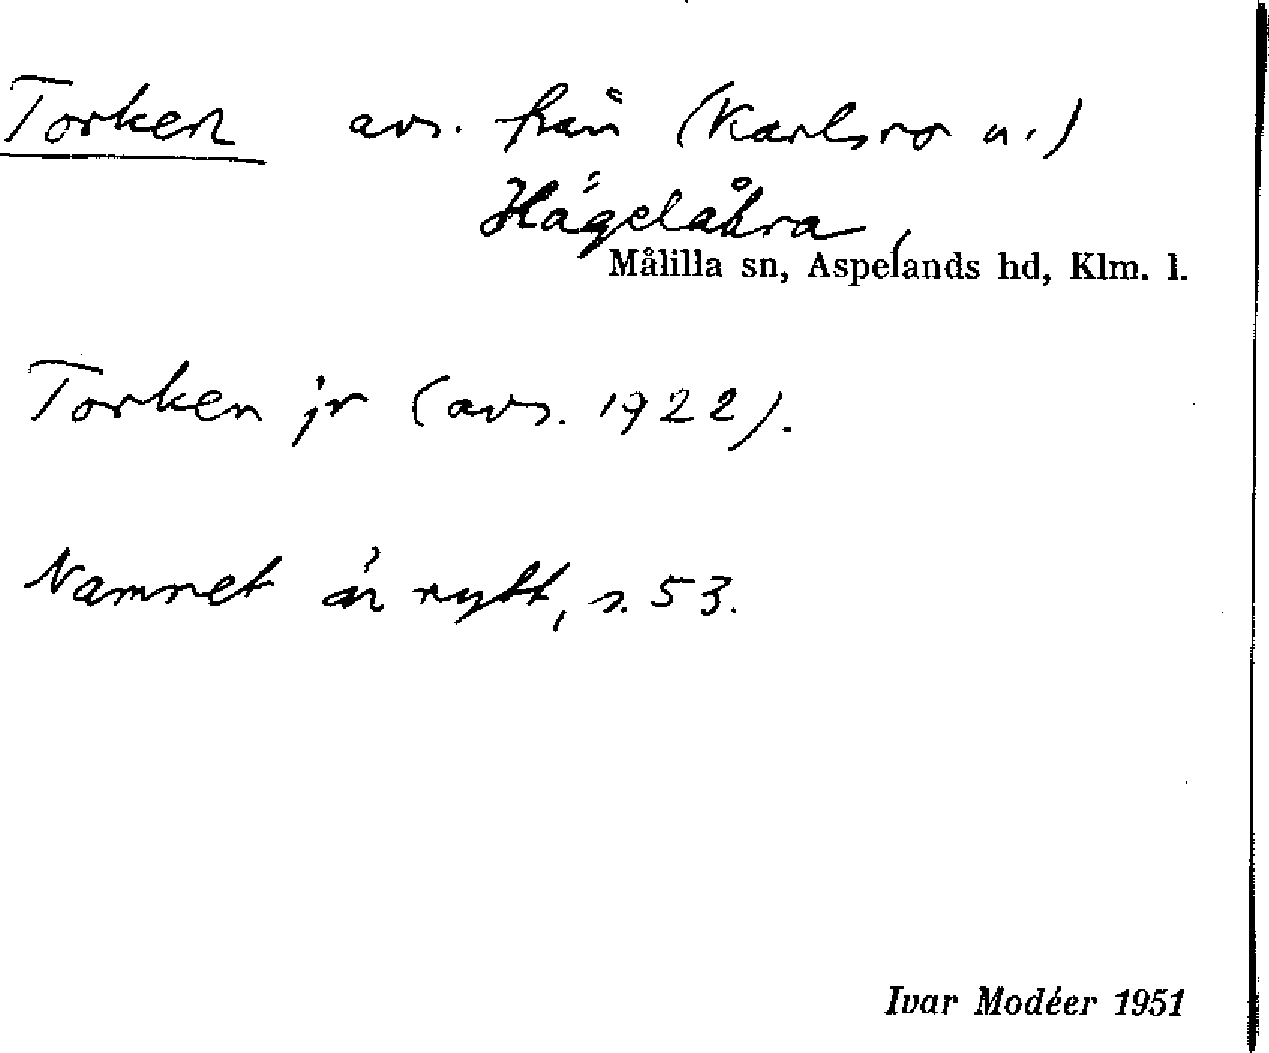 Torken avs. från (Karlsro u.)
Hägelåkra,
Målilla sn, Aspelands hd, Klm. l.
Torken jr (avs. 1922).
Namnet är nytt, s. 53.
Ivar Modéer 1951